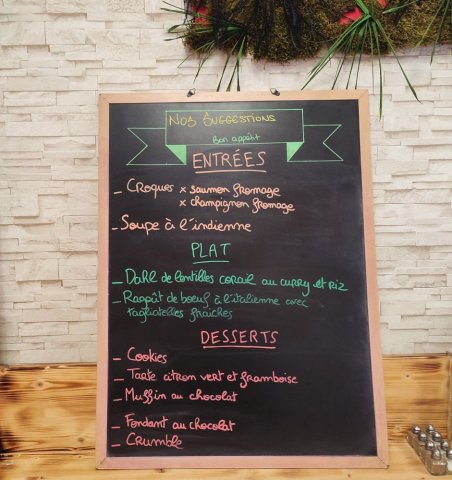 Nos Suggestions
Bon appétit
ENTRÉES
_ Croques x saumon fromage
x champignon fromage
_ Soupe à l'indienne
PLAT
_ Dahl de lentilles corail au curry et riz
_ Ragoût de boeuf à l'italienne avec
tagliatelles fraîches
DESSERTS
_ Cookies
_ Tarte citron vert et framboise
_ Muffin au chocolat
_ Fondant au chocolat
_ Crumble